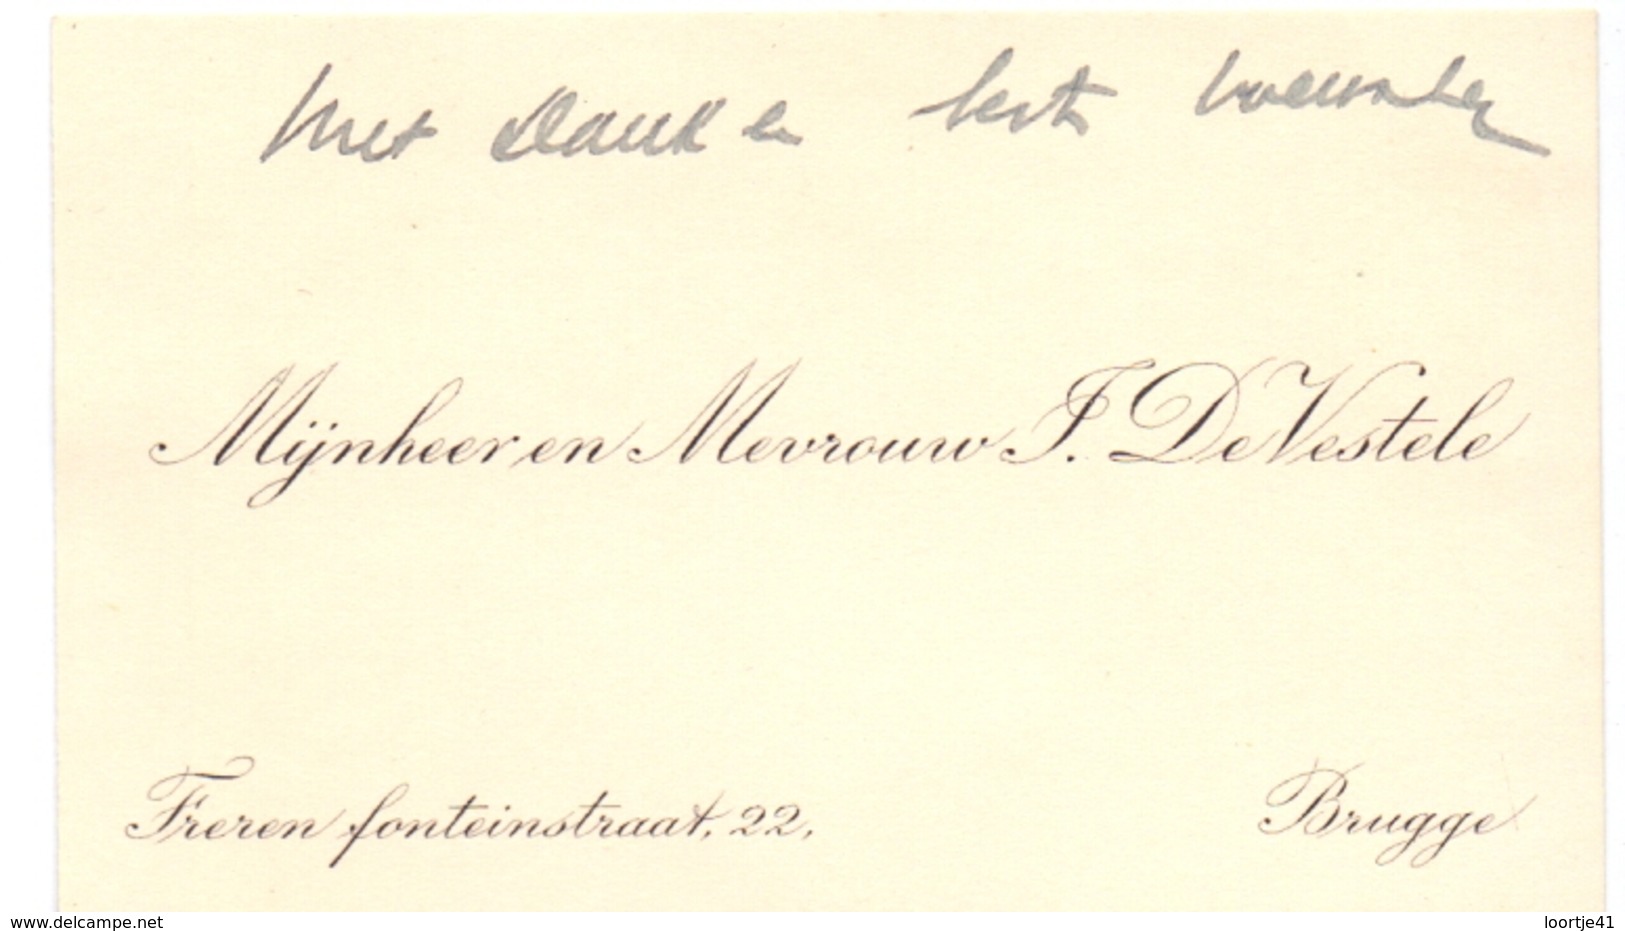 Met dank en beste wensen
Mijnheer en Mevrouw J. De Vestele
Freren fonteinstraat, 22,
Brugge
www.delcampe.net
loortje41